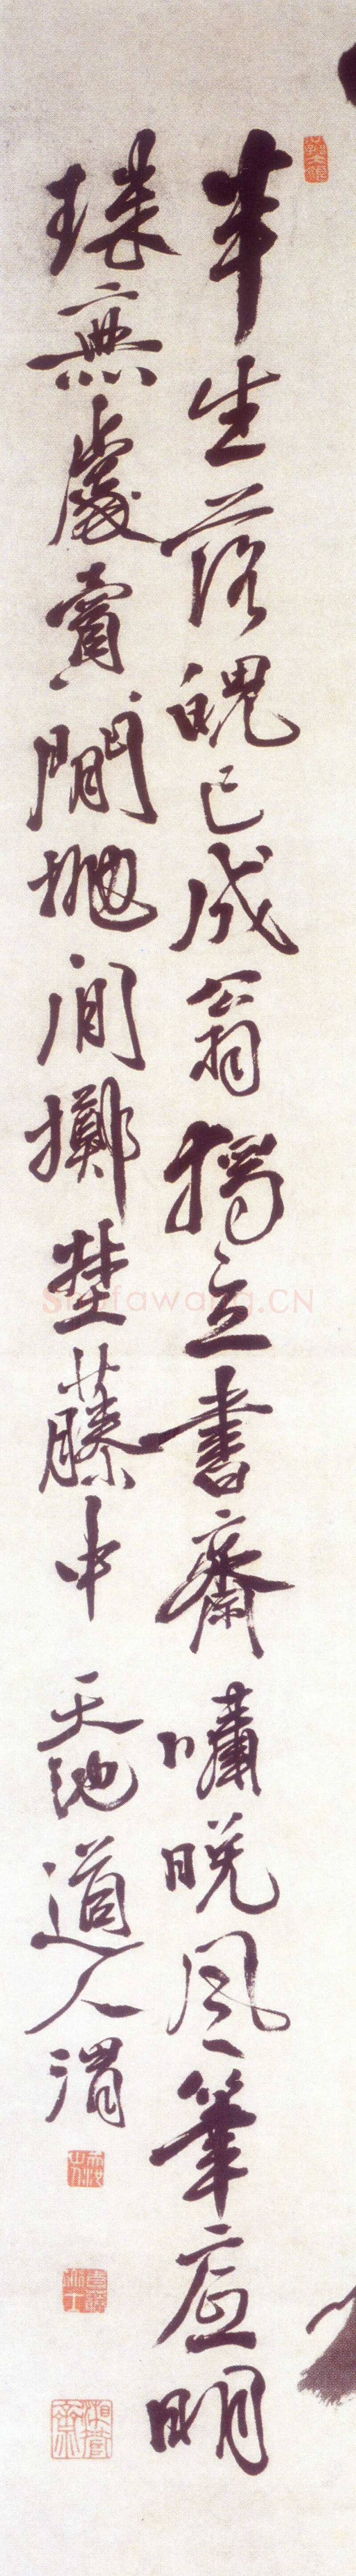 半生落魄已成翁獨立書齋嘯晚風筆底明
珠無處賣閒拋閒擲埜藤中 天池道人渭
湘管齋
Shufawang.CN